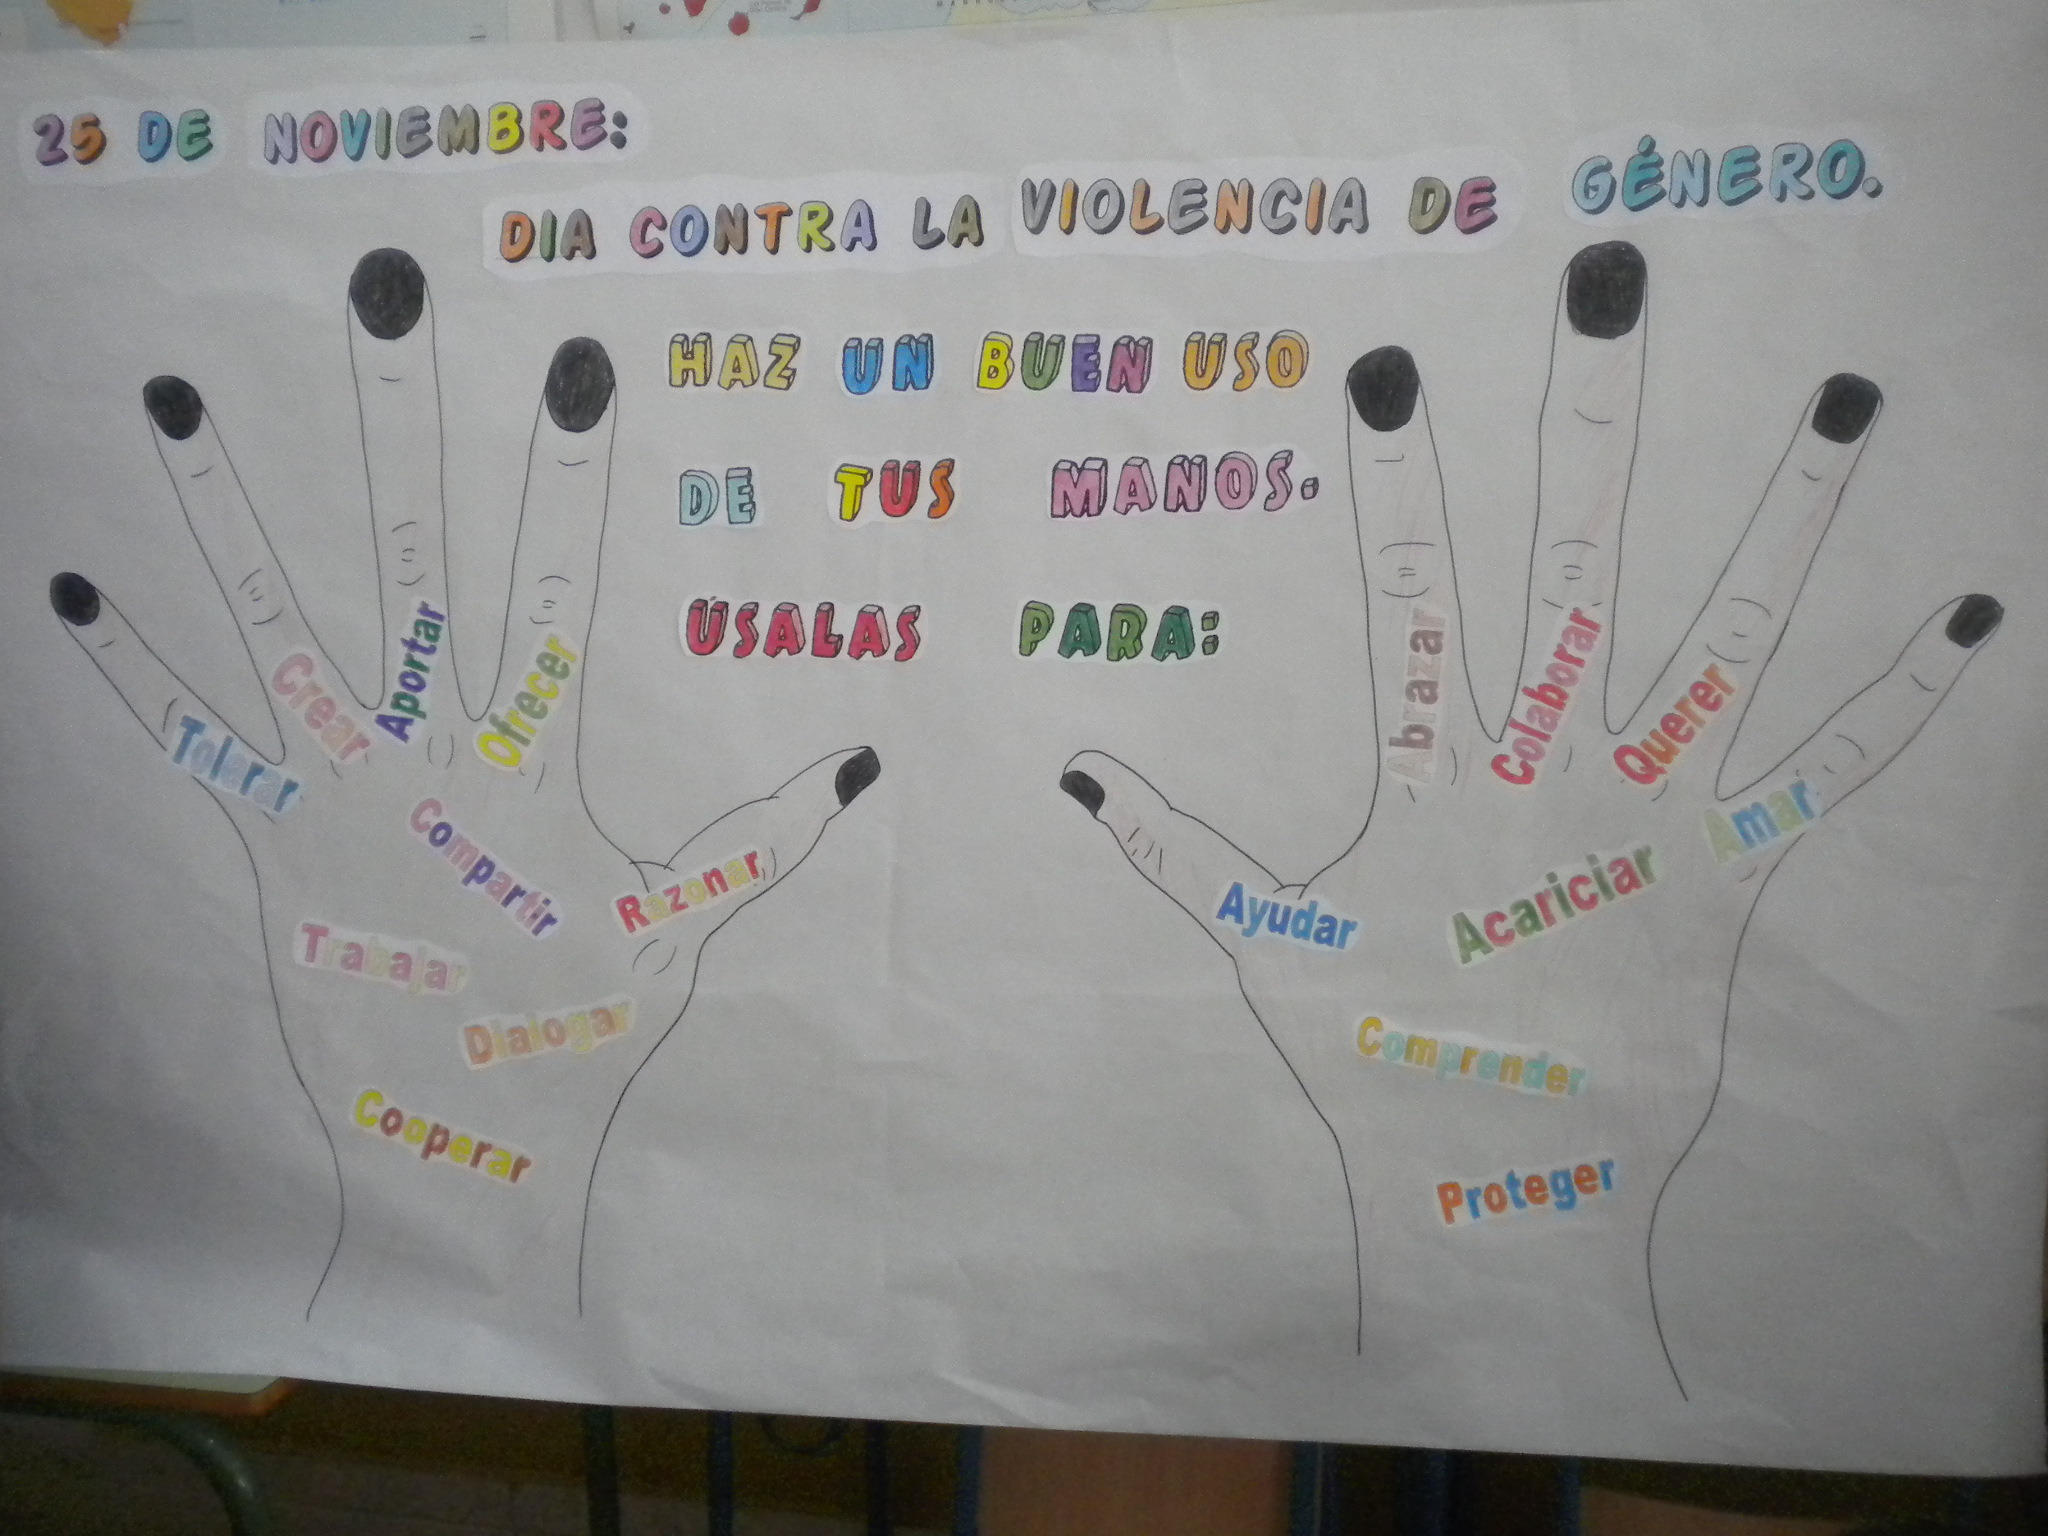 25 DE NOVIEMBRE:
DIA CONTRA LA VIOLENCIA DE GÉNERO.
HAZ UN BUEN USO
DE TUS MANOS.
ÚSALAS PARA:
Tolerar
Crear
Aportar
Ofrecer
Compartir
Razonar
Trabajar
Dialogar
Cooperar
Abrazar
Colaborar
Querer
Amar
Ayudar
Acariciar
Comprender
Proteger